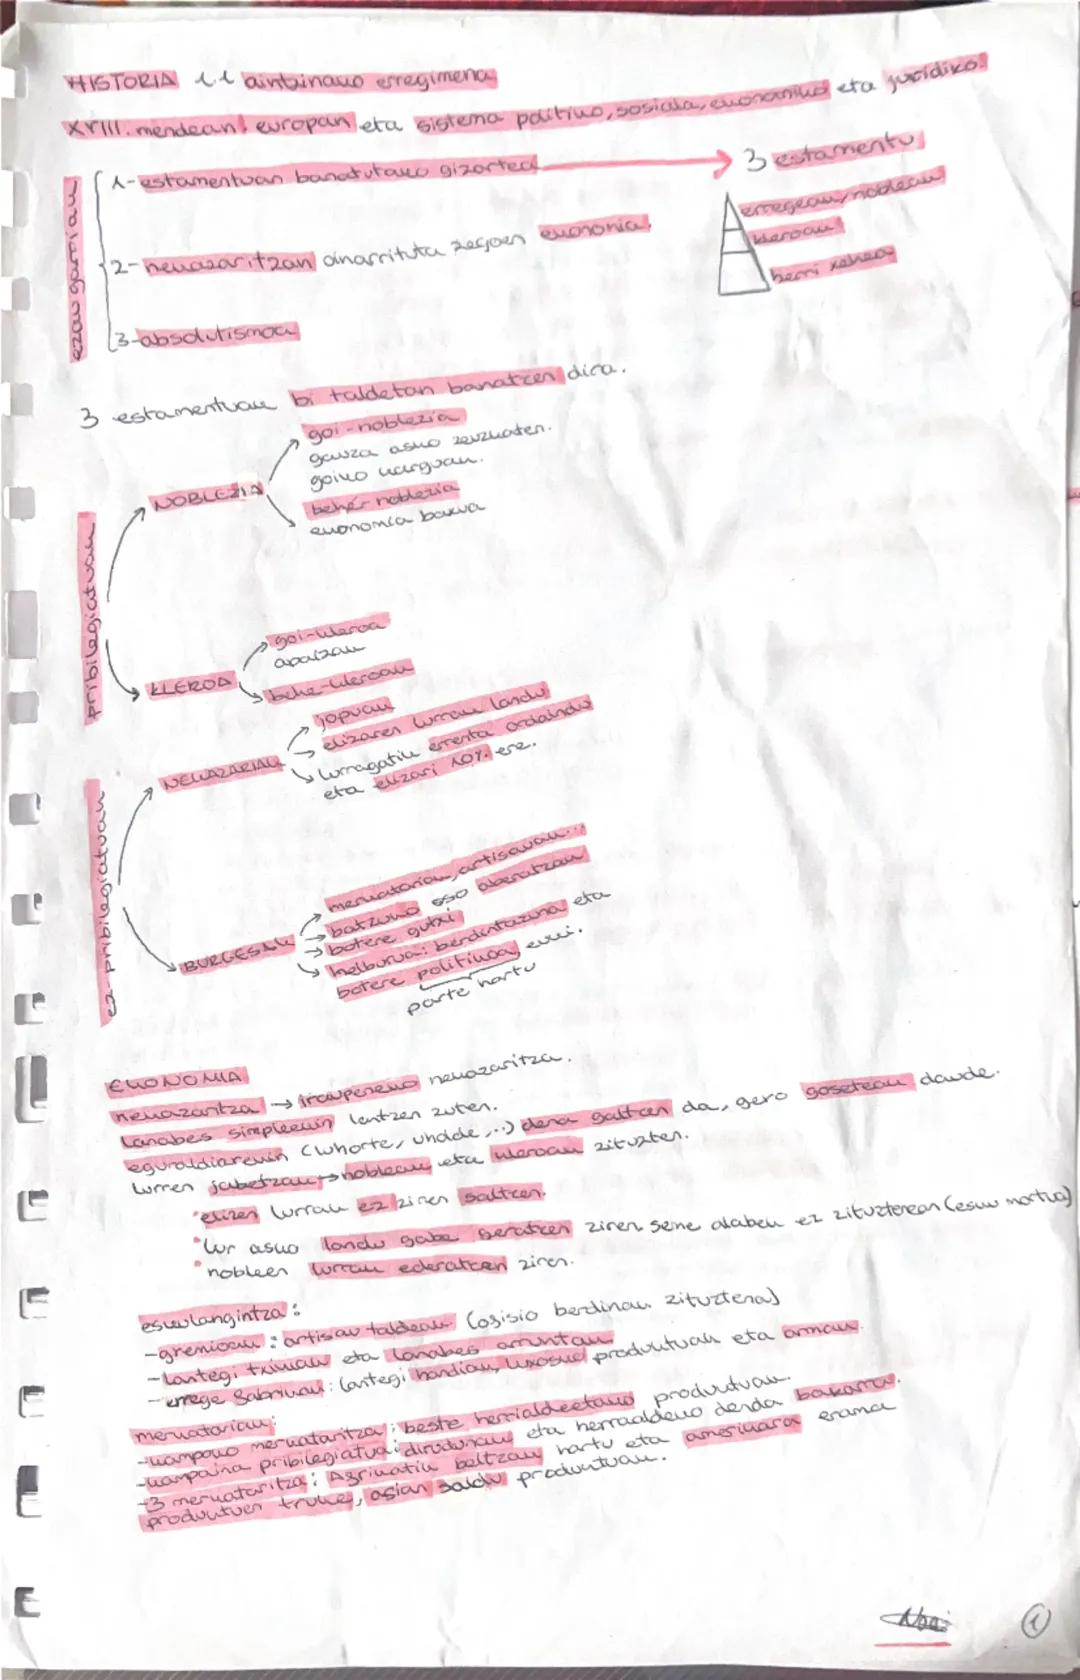 HISTORIA 1.1 aintzinako erregimena
XVIII. mendean! europan eta sistema politiko, soziala, ekonomiko eta juridiko.
ezaugarriak
1-estamentuan banatutako gizartea
3 estamentu
erregeak/nobleak
kleroak
herri xehea
2-nekazaritzan oinarrituta zegoen ekonomia.
3-absolutismoa
3 estamentuak bi taldetan banatzen dira.
pribilegiatuak
NOBLEZIA
goi-noblezia
gauza asko zeuzkaten.
goiko karguak.
behe-noblezia
ekonomia baxua
KLEROA
goi-kleroa
apaizak
behe-kleroak
ez-pribilegiatuak
NEKAZARIAK
jopuak
elizaren lurrak landu
lurragatik errenta ordaindu
eta elizari 10% ere.
BURGESAK
merkatariak, artisauak...
batzuk oso aberatzak
botere gutxi
helburua: berdintazuna eta
botere politikoa euki.
parte hartu
EKONOMIA
nekazaritza → iraupeneko nekazaritza.
Lanabes simpleekin lentzen zuten.
eguraldiarekin (lehorte, uholde,..) dena galtzen da, gero goseteak daude.
lurren jabetzak → nobleak eta kleroak zituzten.
elizen lurrak ez ziren saltzen.
lur asko landu gabe geratzen ziren, seme alabek ez zituztenean (esku mortua)
nobleen lurrak ederatzen ziren.
eskulangintza:
-gremioak: artisau taldeak (ofisio berdinak zituztena)
-Lantegi txikiak eta lanabes arruntak
-errege fabrikak: lantegi handiak, luxosuak produktuak eta armak.
merkatariak:
-kanpoko merkataritza: beste herrialdeetako produktuak.
-kanpaina pribilegiatua: dirudunak eta herraaldeko denda bakarra.
-3 merkataritza: Afrikatik beltzak hartu eta amerikara erama
produktuen truke, asian saldu produktuak.
1